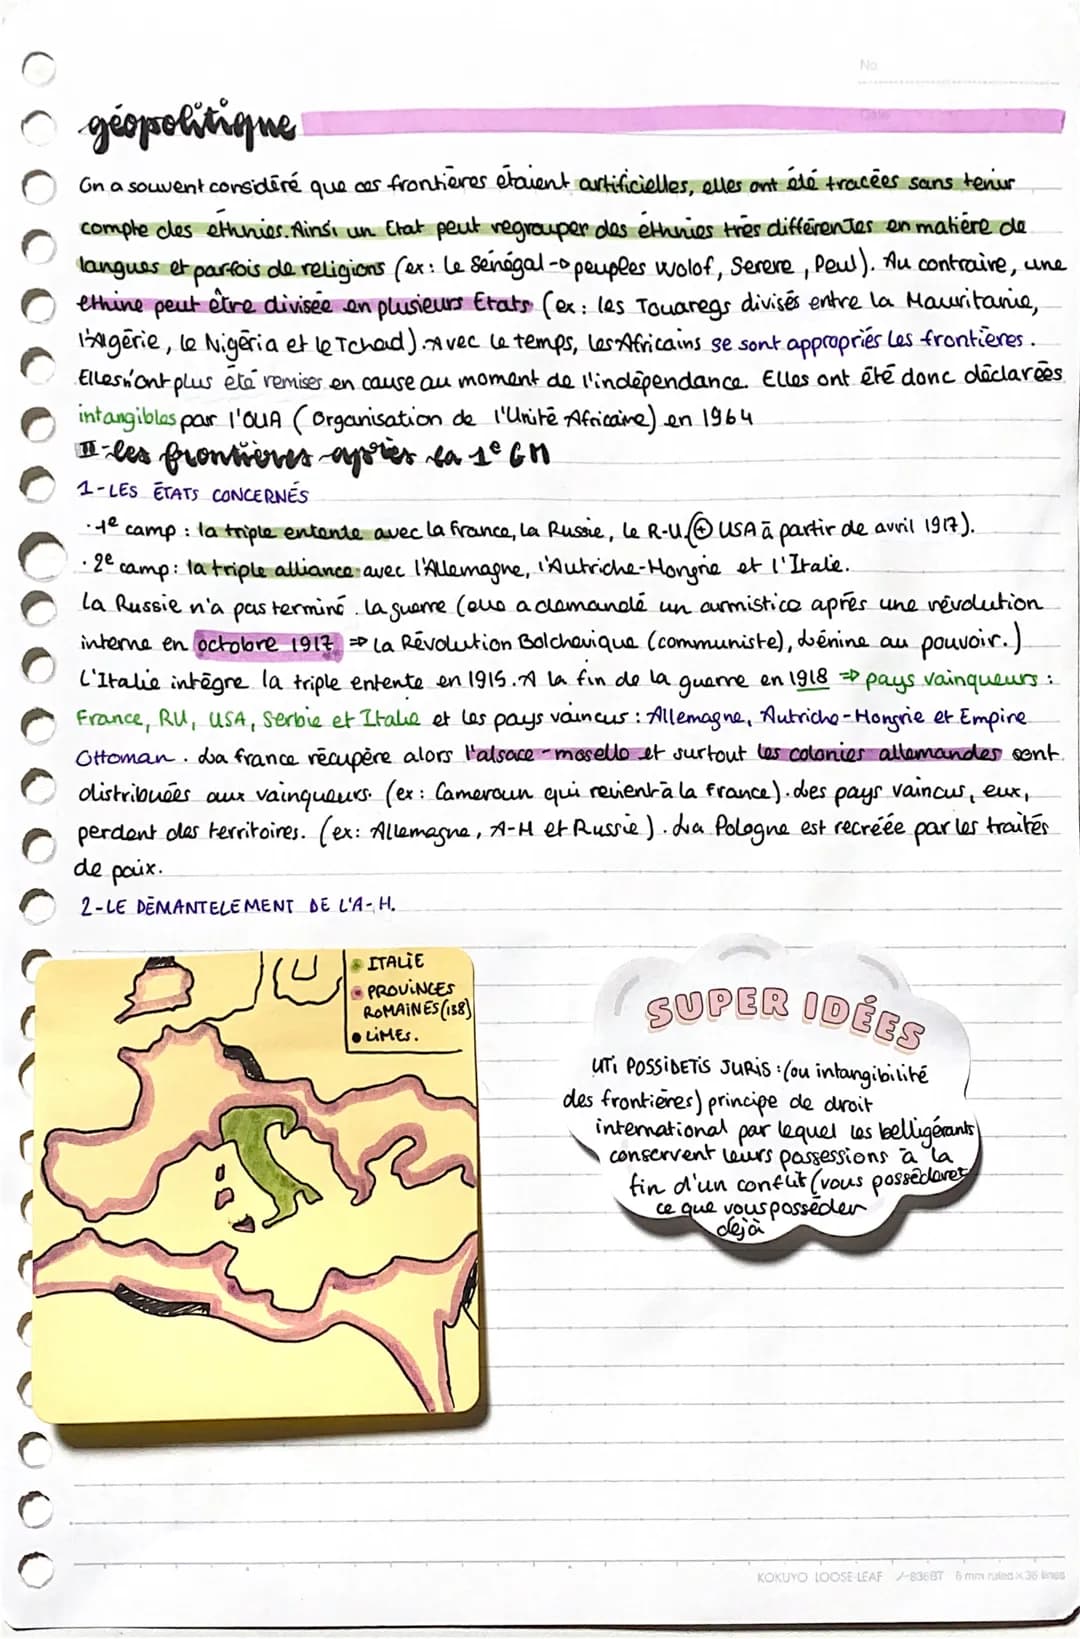 No.
Date
géopolitique
On a souvent considéré que ces frontières étaient artificielles, elles ont été tracées sans tenir
compte des éthnies. Ainsi un Etat peut regrouper des éthnies très différentes en matière de
langues et parfois de religions (ex: Le Sénégal → peuples wolof, Serere, Peul). Au contraire, une
ethine peut être divisée en plusieurs Etats (ex: les Touaregs divisés entre la Mauritanie,
l'Algérie, le Nigéria et le Tchad). Avec le temps, les Africains se sont appropriés les frontières.
Elles n'ont plus été remises en cause au moment de l'indépendance. Elles ont été donc déclarées
intangibles par l'OUA (Organisation de l'Unité Africaine) en 1964
II-les frontières après la 1e GM
1-LES ÉTATS CONCERNÉS
· 1e camp : la triple entente avec la France, la Russie, le R-U (+ USA à partir de avril 1917).
· 2e camp : la triple alliance avec l'Allemagne, l'Autriche-Hongrie et l'Italie.
La Russie n'a pas terminé la guerre (elle a demandé un armistice après une révolution
interne en octobre 1917 ⇒ La Révolution Bolchevique (communiste), Lénine au pouvoir.)
L'Italie intègre la triple entente en 1915. A la fin de la guerre en 1918 ⇒ pays vainqueurs :
France, RU, USA, Serbie et Italie et les pays vaincus : Allemagne, Autriche-Hongrie et Empire
Ottoman. La france récupère alors l'alsace-moselle et surtout les colonies allemandes sont
distribuées aux vainqueurs. (ex: Cameroun qui revient à la France). Les pays vaincus, eux,
perdent des territoires. (ex: Allemagne, A-H et Russie). La Pologne est recréée par les traités
de paix.
2-LE DÉMANTELEMENT DE L'A-H.
ITALIE
PROVINCES
ROMAINES (158)
LIMES.
SUPER IDÉES
UTI POSSIDETIS JURIS : (ou intangibilité
des frontières) principe de droit
international par lequel les belligérants
conservent leurs possessions à la
fin d'un conflit (vous possèderet
ce que vous posséder
dejà
KOKUYO LOOSE-LEAF ノ-836BT 6 mm ruled × 36 lines